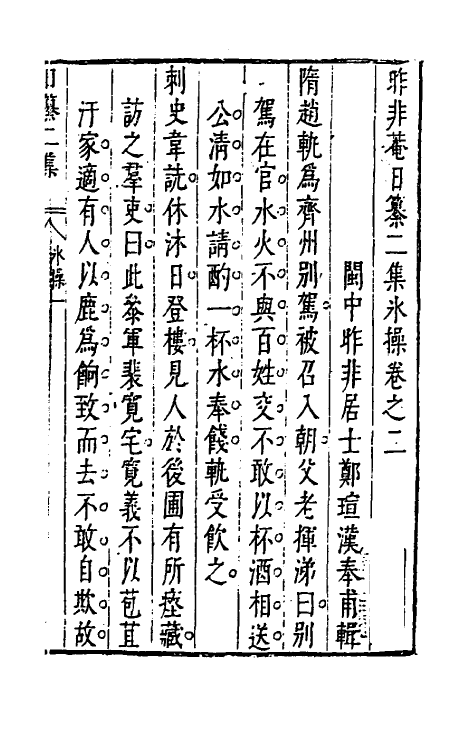 昨非菴日纂二集氷操卷之二
閩中昨非居士鄭瑄漢奉甫輯
隋趙軌為齊州別駕被召入朝父老揮涕曰別
駕在官水火不與百姓交不敢以杯酒相送
公清如水請酌一杯水奉餞軌受飲之
刺史韋詵休沐日登樓見人於後圃有所瘞藏
訪之羣吏曰此叅軍裴寬宅寬義不以苞苴
汙家適有人以鹿為餉致而去不敢自欺故
日纂二集
氷操
一